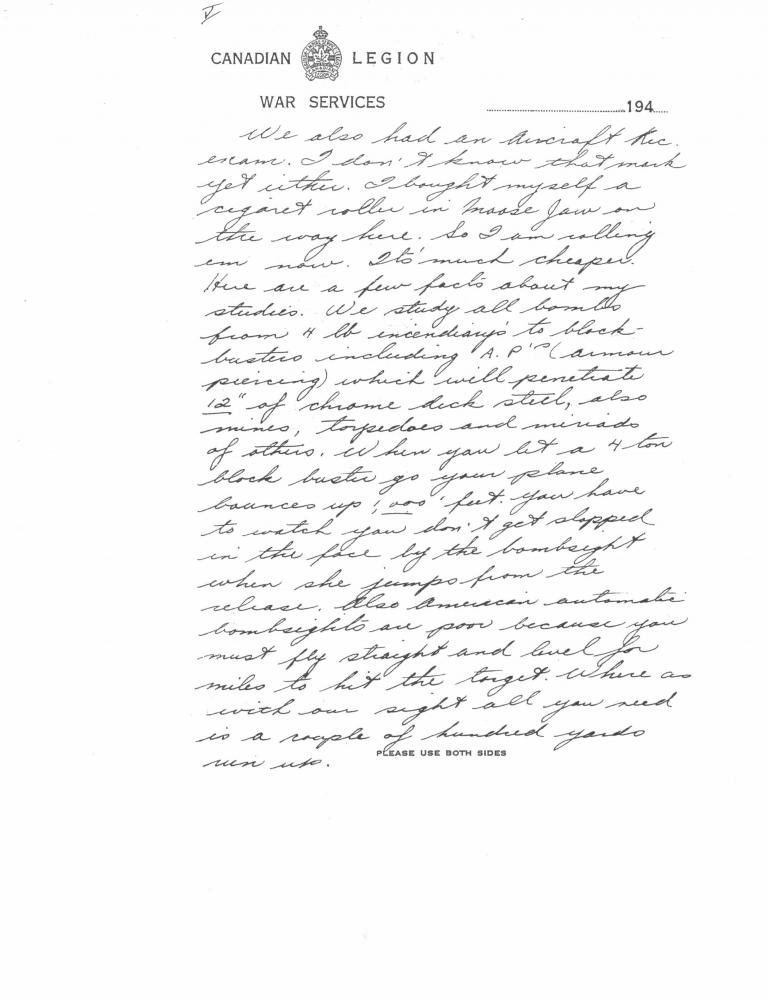 V
CANADIAN LEGION
WAR SERVICES
194
We also had an Aircraft Rec.
exam. I don't know that mark
yet either. I bought myself a
cigaret roller in Moose Jaw on
the way here. So I am rolling
em now. Its' much cheaper.
Here are a few facts about my
studies. We study all bombs
from 4 lb incendiary's to block-
busters including A.P's (armour
piercing) which will penetrate
12" of chrome deck steel, also
mines, torpedoes and miriads
of others. When you let a 4 ton
block buster go your plane
bounces up 1,000' feet. You have
to watch you don't get slapped
in the face by the bombsight
when she jumps from the
release. Also American automatic
bombsights are poor because you
must fly straight and level for
miles to hit the target. Where as
with our sight all you need
is a couple of hundred yards
run up.
PLEASE USE BOTH SIDES